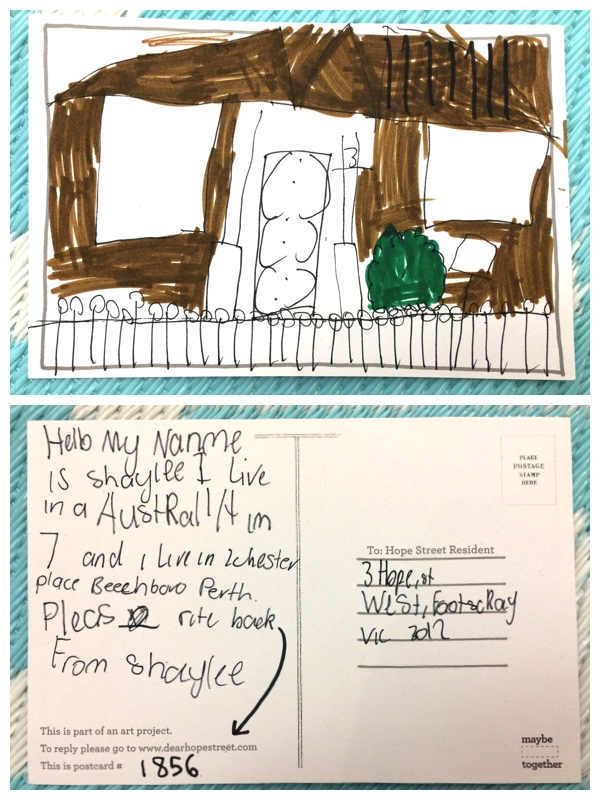 3
Hello My Nanme
is shaylee I Live
in a AustRallIA im
7 and i Live in 2chester
place Beechboro Perth.
Pleas rite back
From shaylee
This is part of an art project.
To reply please go to www.dearhopestreet.com
This is postcard # 1856
PLACE
POSTAGE
STAMP
HERE
To: Hope Street Resident
3 Hope, st
West, FootscRay
Vic 3012
maybe
together